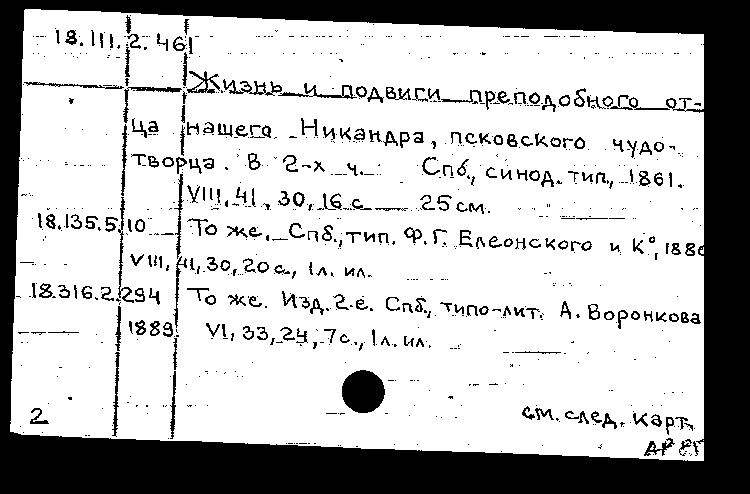 18.III.2.461
Жизнь и подвиги преподобного от-
ца нашего Никандра, псковского чудо-
творца. В 2-х ч. Спб., синод. тип., 1861.
VIII, 41, 30, 16 с 25 см.
18.135.5.10 То же. Спб., тип. Ф.Г. Елеонского и К°, 188
VIII, 41, 30, 20 с., 1 л. ил.
18.316.2.294 То же. Изд. 2-е. Спб., типо-лит. А. Воронкова
1889 VI, 33, 24, 7 с., 1 л. ил.
2 см. след. карт.